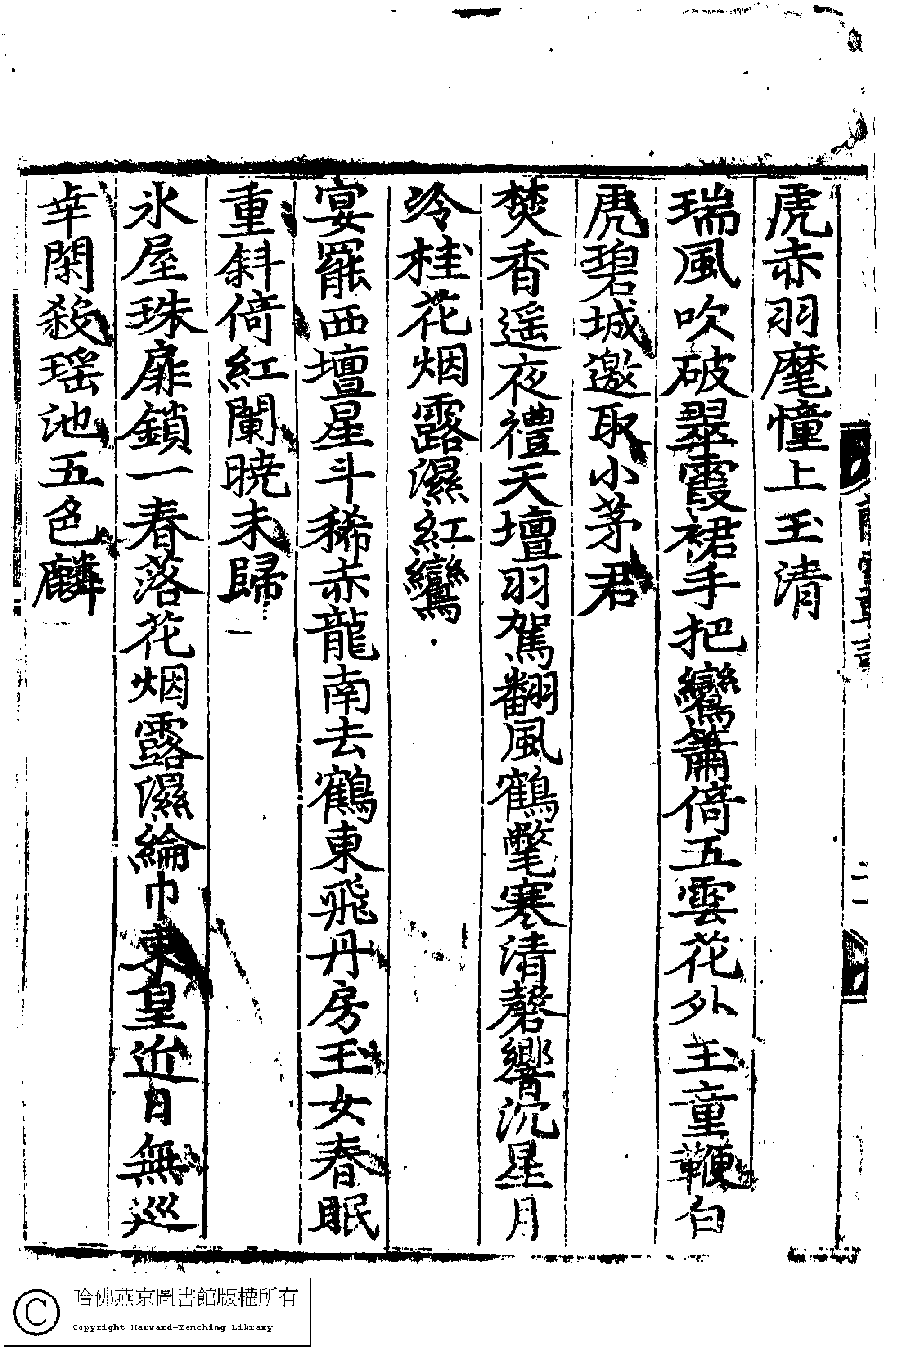 虎赤羽麾憧上玉清
瑞風吹破翠霞裙手把鸞簫倚五雲花外玉童鞭白
虎碧城邀取小茅君
焚香遥夜禮天壇羽駕翻風鶴氅寒清磬響沉星月
冷桂花烟露濕紅鸞
宴罷西壇星斗稀赤龍南去鶴東飛丹房玉女春眠
重斜倚紅闌曉未歸
氷屋珠扉鎖一春落花烟露濕綸巾東皇近日無巡
幸閑殺瑶池五色麟
二
哈佛燕京圖書館版權所有
Copyright Harvard-Yenching Library